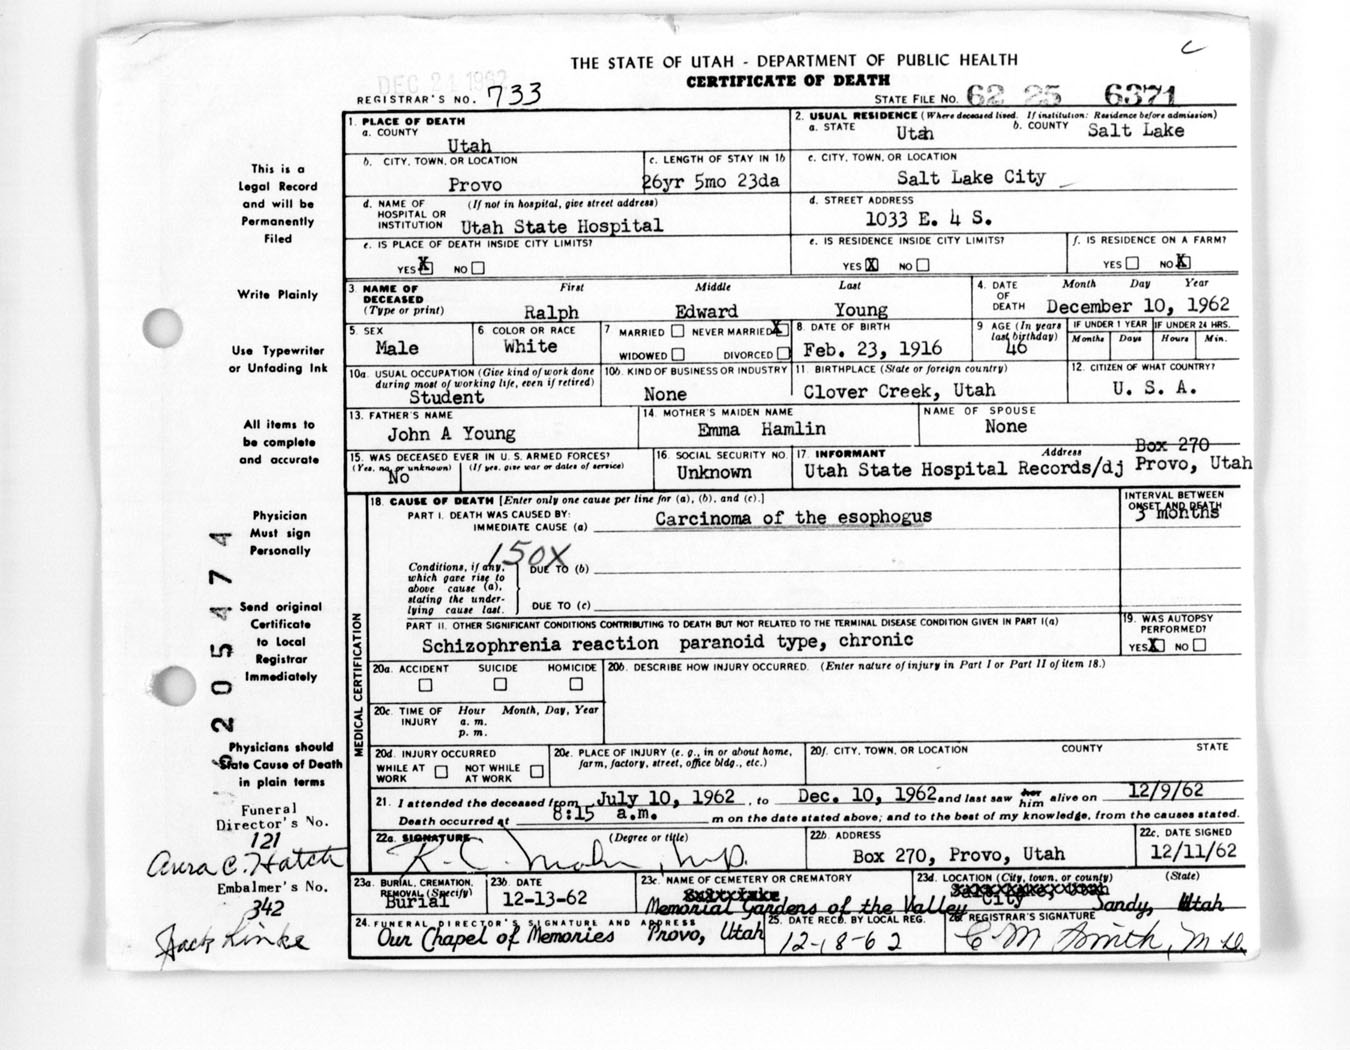 THE STATE OF UTAH - DEPARTMENT OF PUBLIC HEALTH
CERTIFICATE OF DEATH
DEC 21 1962
REGISTRAR'S NO. 733
STATE FILE NO. 62 25 6371
1. PLACE OF DEATH
a. COUNTY
Utah
2. USUAL RESIDENCE (Where deceased lived. If institution: Residence before admission)
a. STATE Utah b. COUNTY Salt Lake
b. CITY, TOWN, OR LOCATION
Provo
c. LENGTH OF STAY IN 1b
26yr 5mo 23da
c. CITY, TOWN, OR LOCATION
Salt Lake City
d. NAME OF HOSPITAL OR INSTITUTION (If not in hospital, give street address)
Utah State Hospital
d. STREET ADDRESS
1033 E. 4 S.
e. IS PLACE OF DEATH INSIDE CITY LIMITS?
YES X NO
e. IS RESIDENCE INSIDE CITY LIMITS?
YES X NO
f. IS RESIDENCE ON A FARM?
YES NO X
3. NAME OF DECEASED (Type or print) First Middle Last
Ralph Edward Young
4. DATE OF DEATH Month Day Year
December 10, 1962
5. SEX
Male
6 COLOR OR RACE
White
7 MARRIED NEVER MARRIED X
WIDOWED DIVORCED
8. DATE OF BIRTH
Feb. 23, 1916
9 AGE (In years last birthday)
46
IF UNDER 1 YEAR IF UNDER 24 HRS.
Months Days Hours Min.
10a. USUAL OCCUPATION (Give kind of work done during most of working life, even if retired)
Student
10b. KIND OF BUSINESS OR INDUSTRY
None
11. BIRTHPLACE (State or foreign country)
Clover Creek, Utah
12. CITIZEN OF WHAT COUNTRY?
U. S. A.
13. FATHER'S NAME
John A Young
14. MOTHER'S MAIDEN NAME
Emma Hamlin
NAME OF SPOUSE
None
15. WAS DECEASED EVER IN U. S. ARMED FORCES?
(Yes, no, or unknown) (If yes, give war or dates of service)
No
16. SOCIAL SECURITY NO.
Unknown
17. INFORMANT Address
Utah State Hospital Records/dj Box 270 Provo, Utah
MEDICAL CERTIFICATION
18. CAUSE OF DEATH [Enter only one cause per line for (a), (b), and (c).]
PART I. DEATH WAS CAUSED BY:
IMMEDIATE CAUSE (a) Carcinoma of the esophogus
INTERVAL BETWEEN ONSET AND DEATH
3 months
150X
Conditions, if any, which gave rise to above cause (a), stating the underlying cause last.
DUE TO (b)
DUE TO (c)
PART II. OTHER SIGNIFICANT CONDITIONS CONTRIBUTING TO DEATH BUT NOT RELATED TO THE TERMINAL DISEASE CONDITION GIVEN IN PART I(a)
Schizophrenia reaction paranoid type, chronic
19. WAS AUTOPSY PERFORMED?
YES X NO
20a. ACCIDENT SUICIDE HOMICIDE
20b. DESCRIBE HOW INJURY OCCURRED. (Enter nature of injury in Part I or Part II of item 18.)
20c. TIME OF INJURY Hour Month, Day, Year
a. m.
p. m.
20d. INJURY OCCURRED
WHILE AT WORK NOT WHILE AT WORK
20e. PLACE OF INJURY (e. g., in or about home, farm, factory, street, office bldg., etc.)
20f. CITY, TOWN, OR LOCATION COUNTY STATE
21. I attended the deceased from July 10, 1962, to Dec. 10, 1962 and last saw her him alive on 12/9/62
Death occurred at 8:15 a.m. m on the date stated above; and to the best of my knowledge, from the causes stated.
22a. SIGNATURE (Degree or title)
M.D.
22b. ADDRESS
Box 270, Provo, Utah
22c. DATE SIGNED
12/11/62
23a. BURIAL, CREMATION, REMOVAL (Specify)
Burial
23b. DATE
12-13-62
23c. NAME OF CEMETERY OR CREMATORY
Memorial Gardens of the Valley
23d. LOCATION (City, town, or county) (State)
City Sandy, Utah
24. FUNERAL DIRECTOR'S SIGNATURE AND ADDRESS
Our Chapel of Memories Provo, Utah
25. DATE RECD. BY LOCAL REG.
12-18-62
26. REGISTRAR'S SIGNATURE
C M Smith, M D.
This is a
Legal Record
and will be
Permanently
Filed
Write Plainly
Use Typewriter
or Unfading Ink
All items to
be complete
and accurate
Physician
Must sign
Personally
Send original
Certificate
to Local
Registrar
Immediately
Physicians should
State Cause of Death
in plain terms
6205474
Funeral
Director's No.
121
Aura C. Hatch
Embalmer's No.
342
Jack Linke